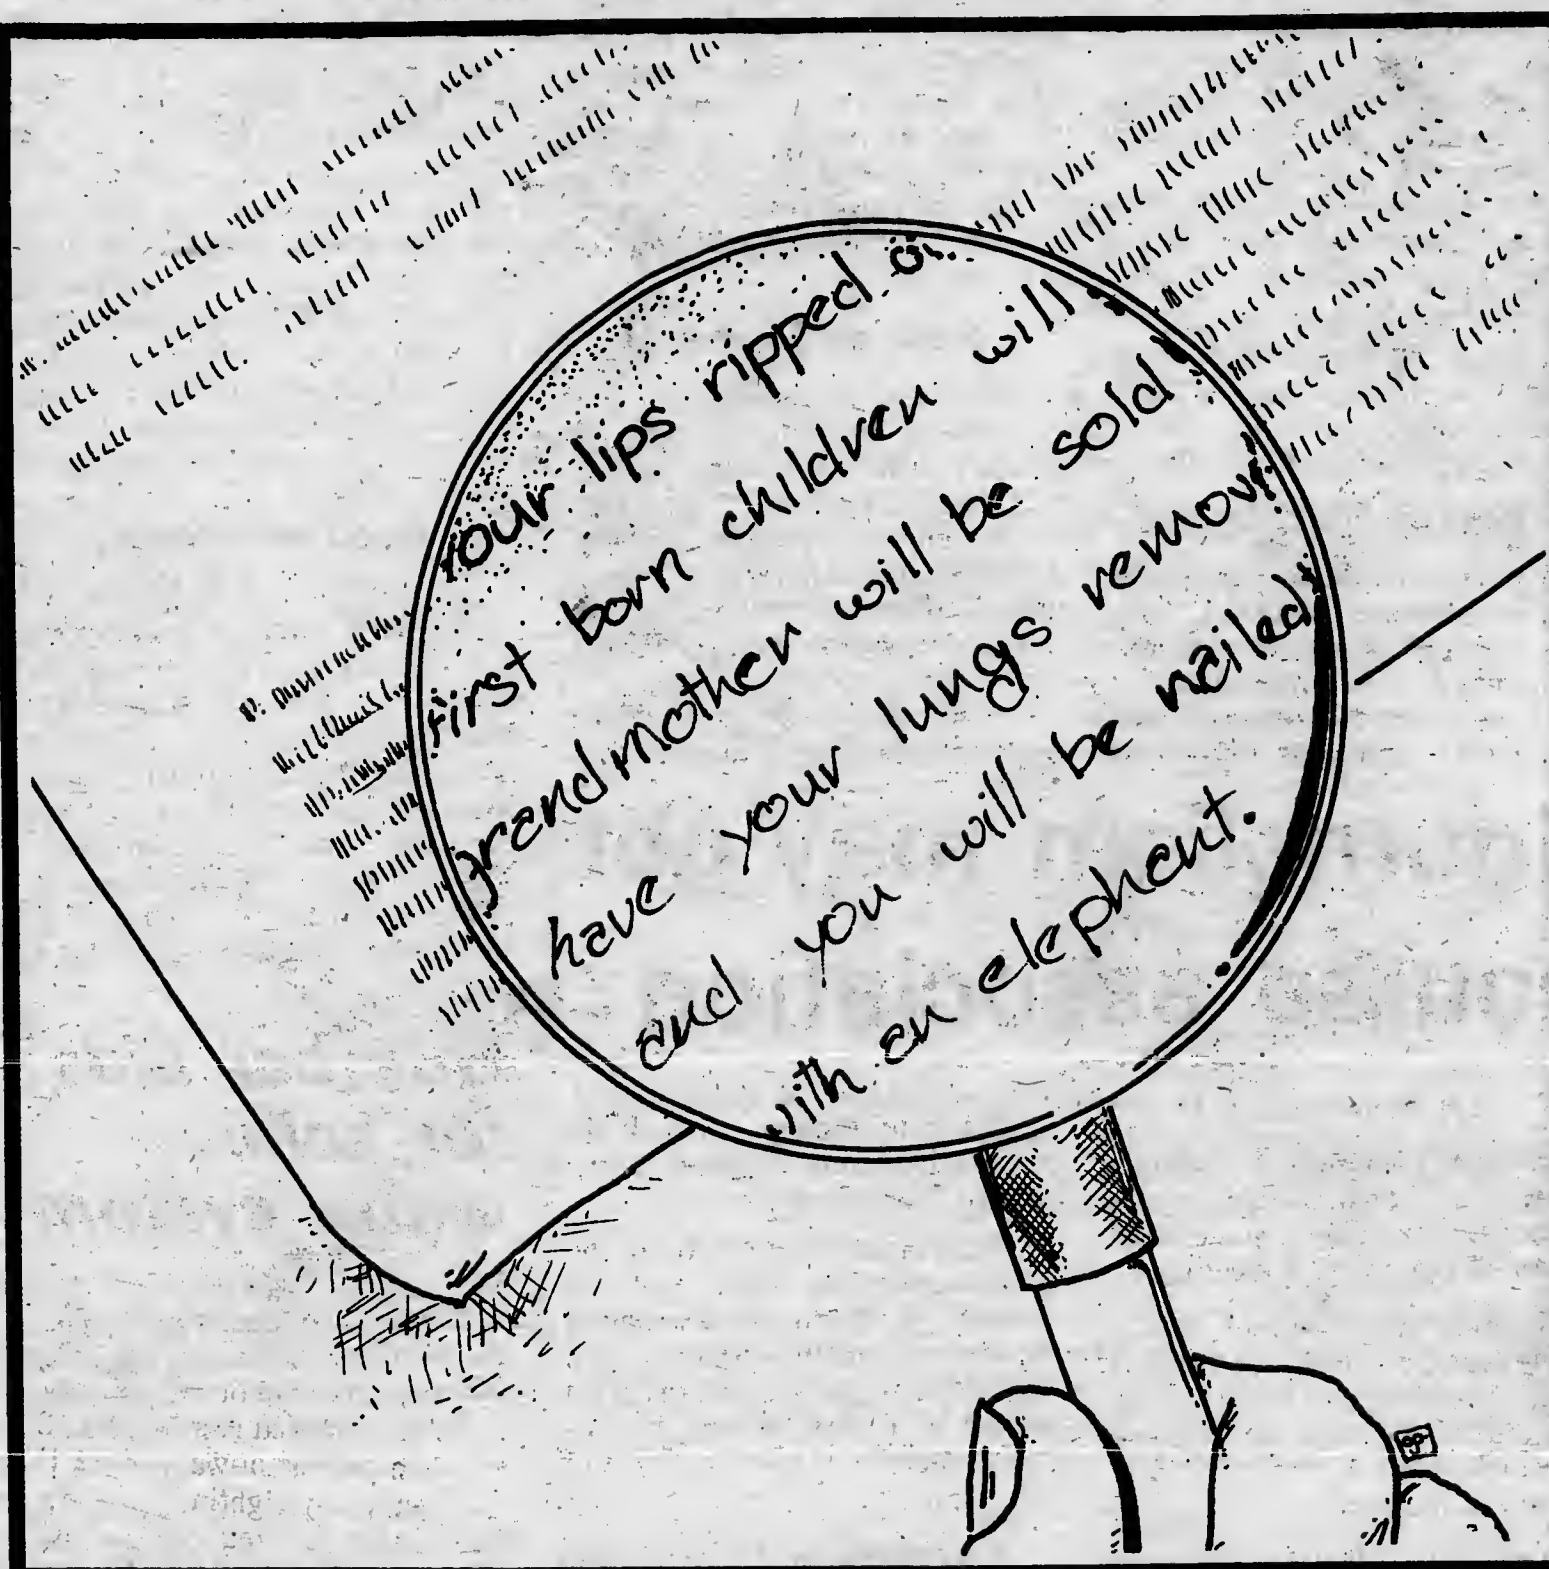 your lips ripped o
first born children will
grandmother will be sold
have your lungs remov
and you will be nailed
with an elephant.